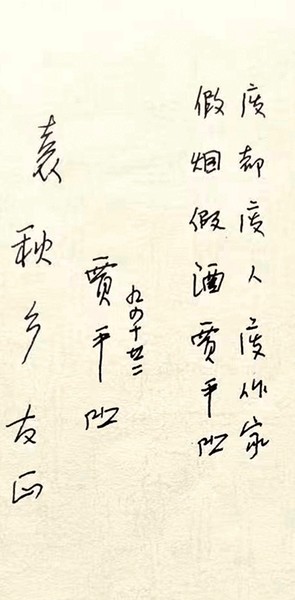 废都废人废作家
假烟假酒賈平凹
九四十廿二
賈平凹
袁秋乡友正